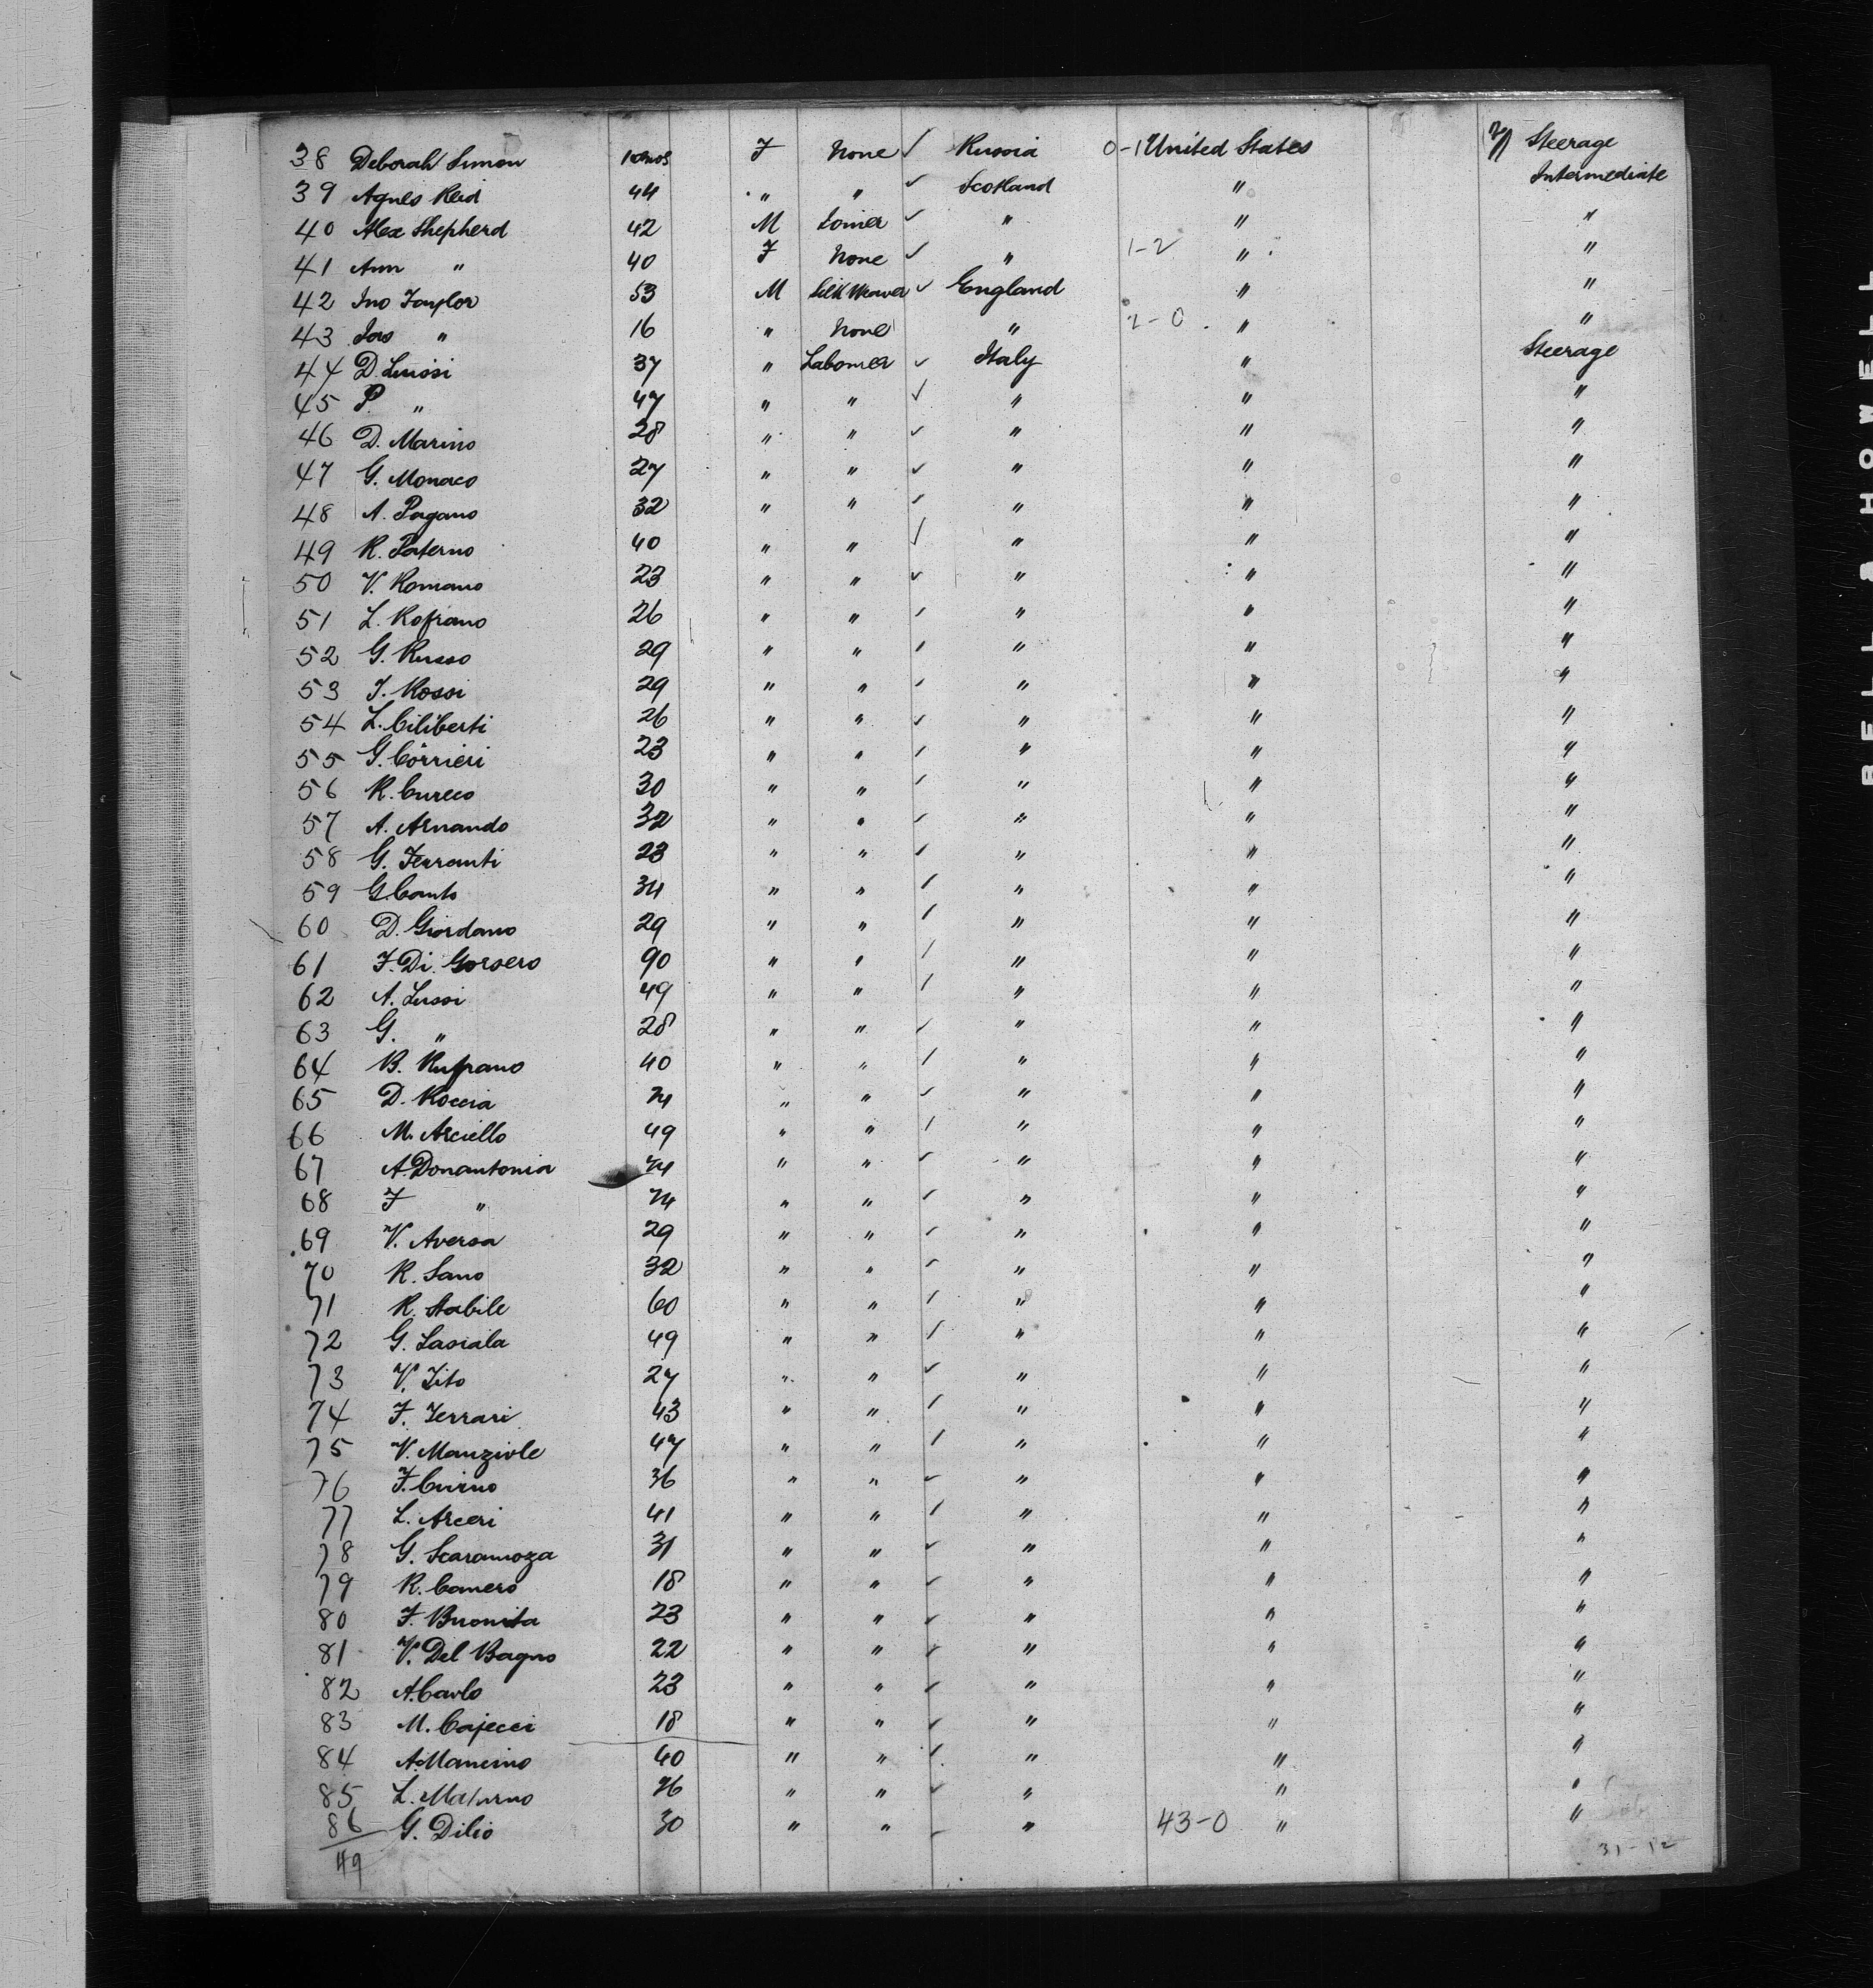 38 Deborah Simon 10mos F None ✓ Russia 0-1 United States Steerage
39 Agnes Reid 44 " " ✓ Scotland " Intermediate
40 Alex Shepherd 42 M Joiner ✓ " " "
41 Ann " 40 F None ✓ " 1-2 " "
42 Jno Taylor 53 M Silk Weaver ✓ England " "
43 Jas " 16 " None " 2-0 " "
44 D. Luissi 37 " Labourer ✓ Italy " Steerage
45 P. " 47 " " ✓ " " "
46 D. Marino 28 " " ✓ " " "
47 G. Monaco 27 " " ✓ " " "
48 A. Pagano 32 " " ✓ " " "
49 R. Paterno 40 " " ✓ " " "
50 V. Romano 23 " " ✓ " " "
51 L. Rofrano 26 " " ✓ " " "
52 G. Russo 29 " " ✓ " " "
53 J. Rossi 29 " " ✓ " " "
54 L. Ciliberti 26 " " ✓ " " "
55 G. Corrieri 23 " " ✓ " " "
56 R. Cureco 30 " " ✓ " " "
57 A. Arnando 32 " " ✓ " " "
58 G. Ferranti 23 " " ✓ " " "
59 G. Canto 34 " " ✓ " " "
60 D. Giordano 29 " " ✓ " " "
61 F. Di Gorsero 90 " " ✓ " " "
62 A. Lussi 49 " " ✓ " " "
63 G. " 28 " " ✓ " " "
64 B. Rufrano 40 " " ✓ " " "
65 D. Roccia " " ✓ " " "
66 M. Arciello 49 " " ✓ " " "
67 A. Donantonia " " ✓ " " "
68 F " " " ✓ " " "
69 V. Aversa 29 " " ✓ " " "
70 R. Sano 32 " " ✓ " " "
71 R. Stabile 60 " " ✓ " " "
72 G. Lasiala 49 " " ✓ " " "
73 V. Zito 27 " " ✓ " " "
74 F. Ferrari 43 " " ✓ " " "
75 V. Manziole 47 " " ✓ " " "
76 F. Cuirno 36 " " ✓ " " "
77 L. Arceri 41 " " ✓ " " "
78 G. Scaramoza 31 " " ✓ " " "
79 R. Camero 18 " " ✓ " " "
80 F. Buonita 23 " " ✓ " " "
81 V. Del Bagno 22 " " ✓ " " "
82 A. Carlo 23 " " ✓ " " "
83 M. Cajecci 18 " " ✓ " " "
84 A. Mancino 40 " " ✓ " " "
85 L. Maturno 26 " " ✓ " " "
86 G. Dilio 30 " " ✓ " 43-0 " "
49 31-12
BELL & HOWELL